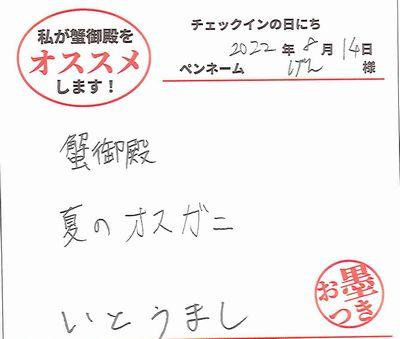 私が蟹御殿を
オススメ
します！
チェックインの日にち
2022年8月14日
ペンネーム げん 様
蟹御殿
夏のオスガニ
いとうまし
お墨つき